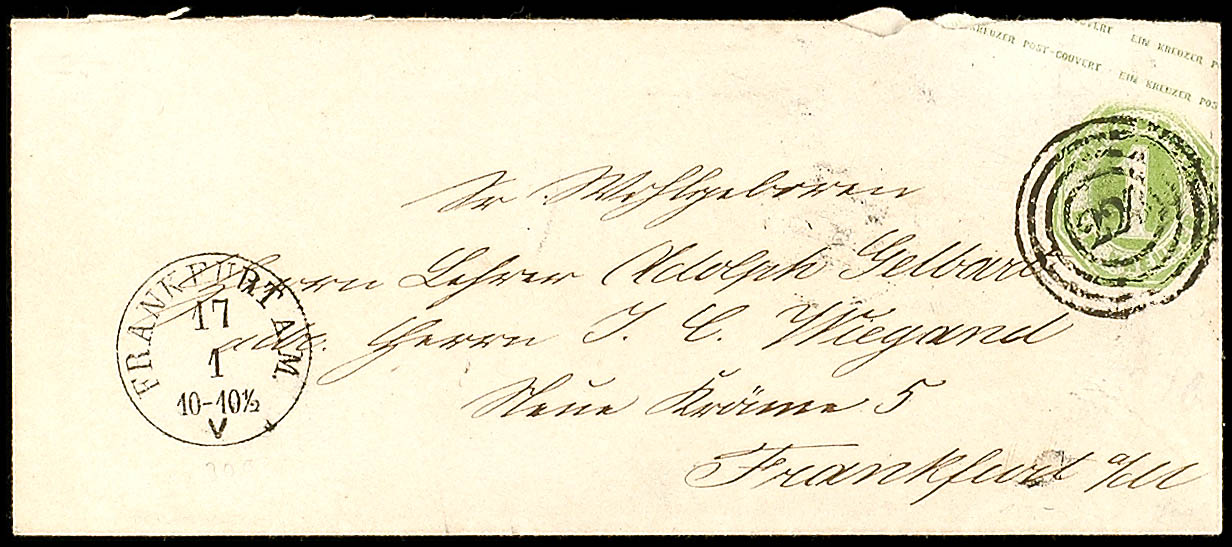 KREUZER POST-COUVERT EIN KREUZER PO
EIN KREUZER POS
1
Sr Wohlgeboren
Herrn Lehrer Adolph Gelbart
adr. Herrn J. C. Wiegand
Neue Kräme 5
Frankfurt a/M
FRANKFURT A. M.
17
1
10-10½
V